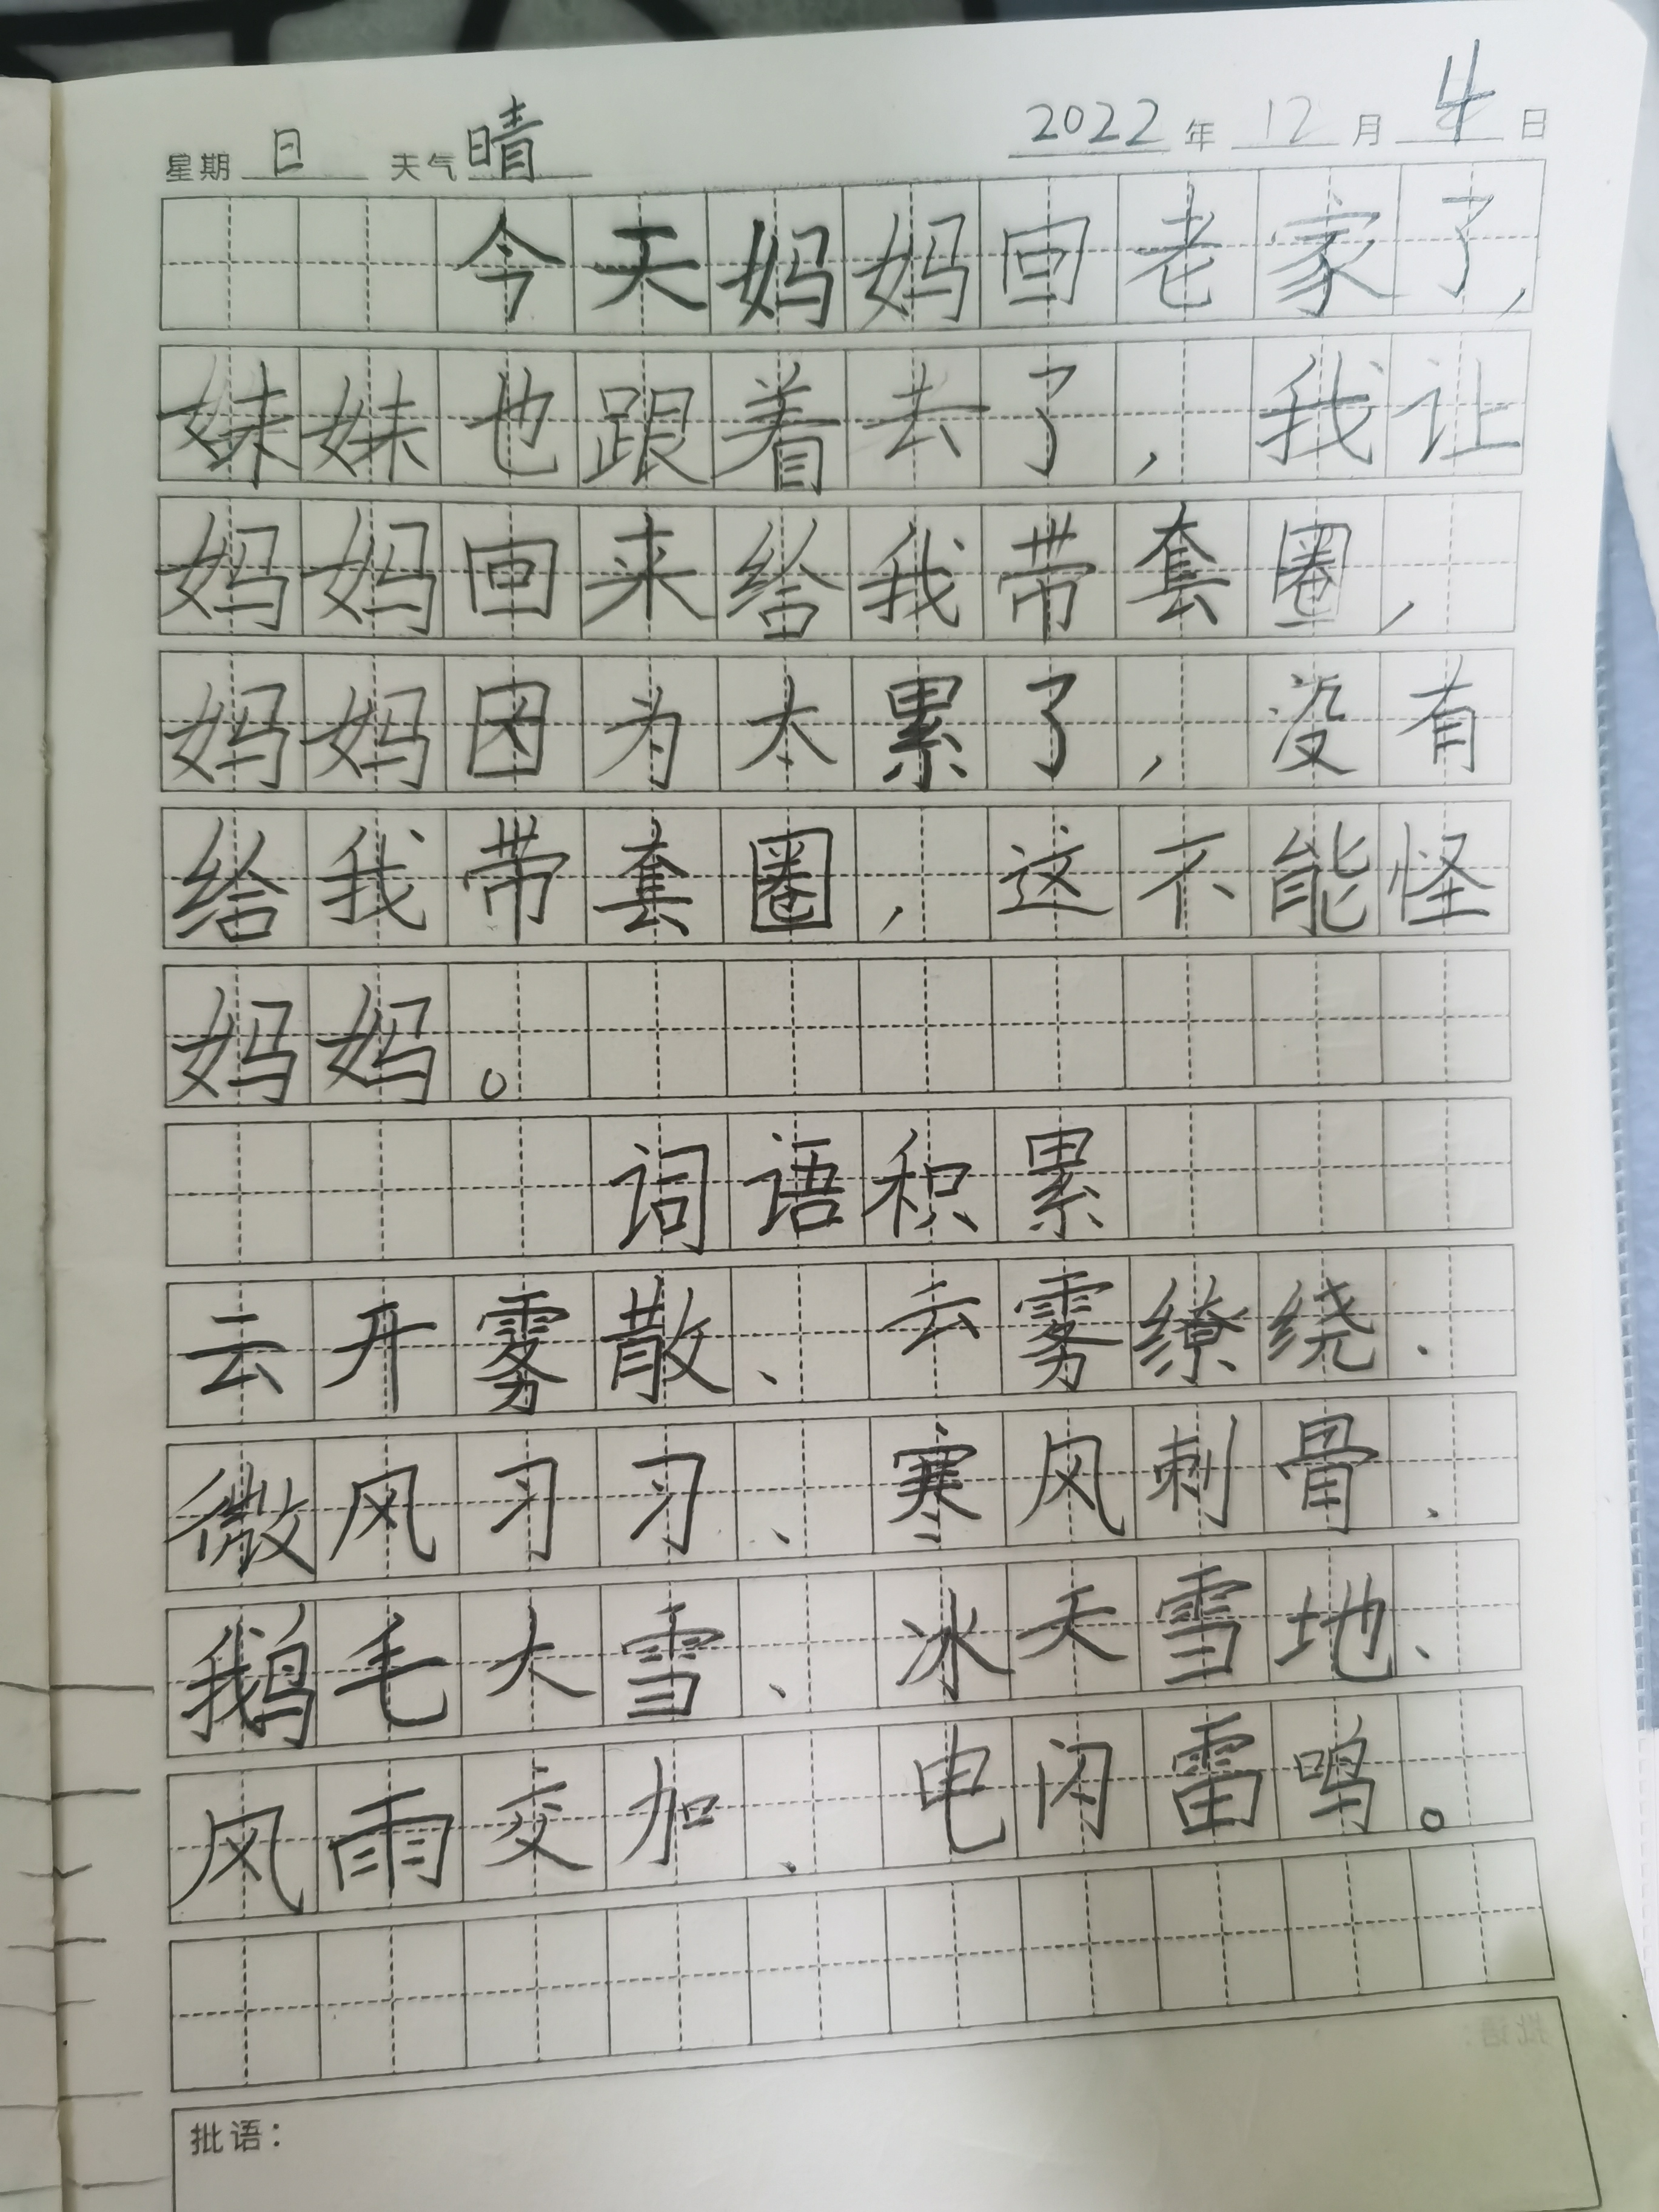 星期 日 天气 晴 2022 年 12 月 4 日
今天妈妈回老家了,
妹妹也跟着去了,我让
妈妈回来给我带套圈,
妈妈因为太累了,没有
给我带套圈,这不能怪
妈妈。
词语积累
云开雾散、云雾缭绕、
微风习习、寒风刺骨、
鹅毛大雪、冰天雪地、
风雨交加、电闪雷鸣。
批语: